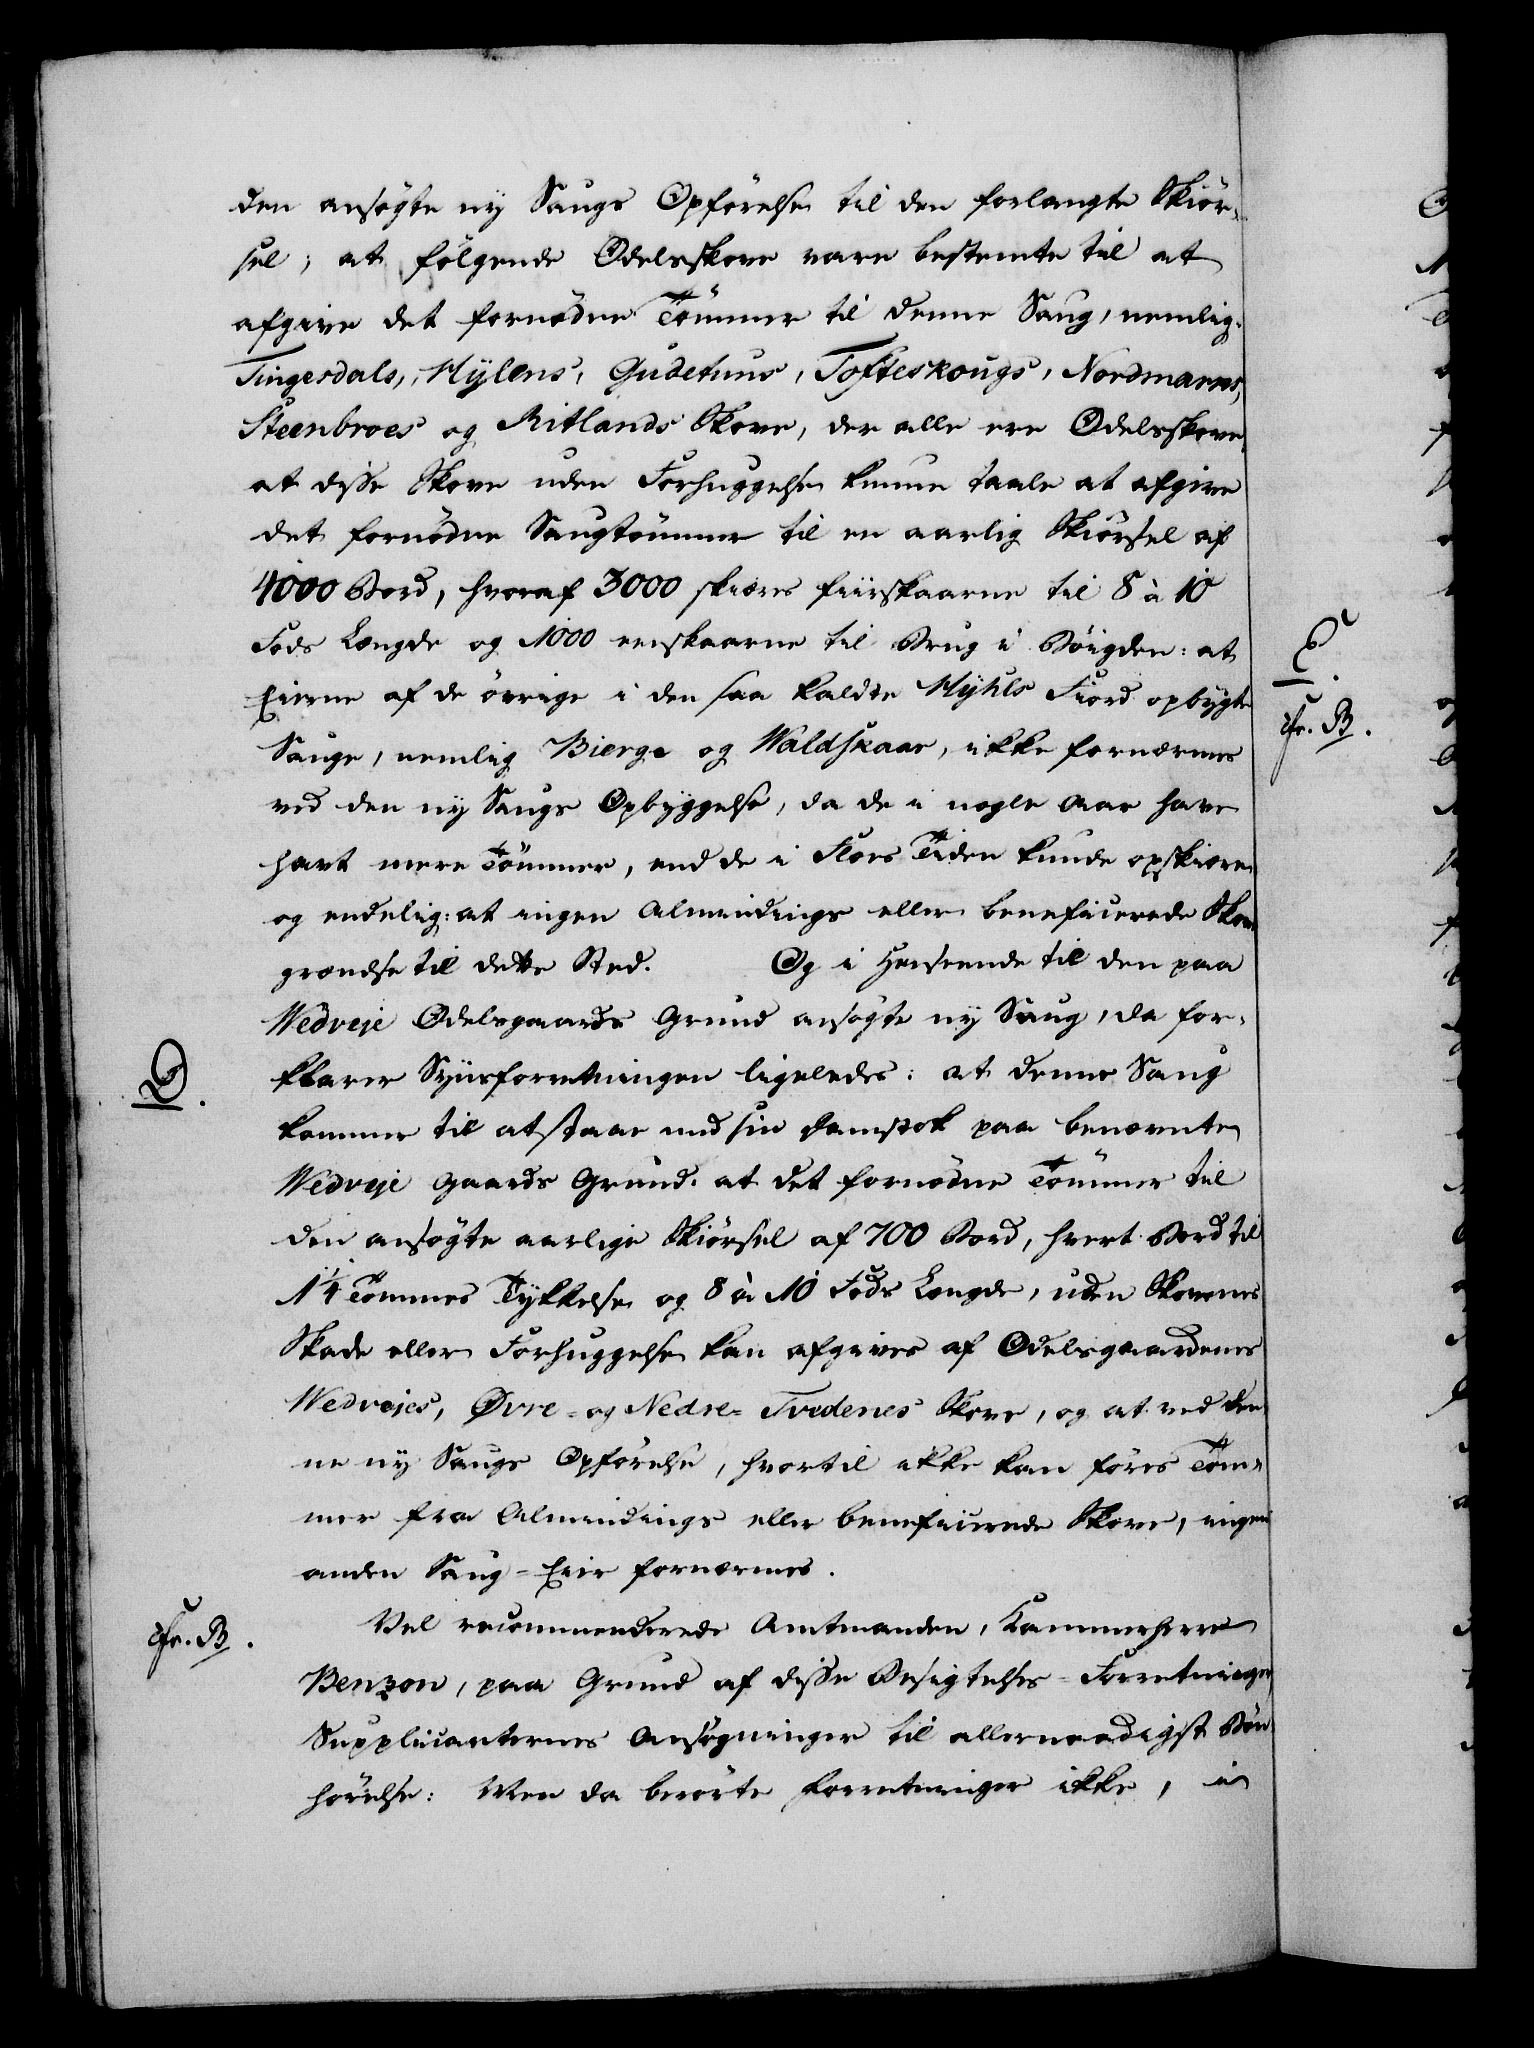 den ansøgte ny Saugs Opførelse til den forlangte Skiør-
sel; at følgende Odelsskove vare bestemte til at
afgive det fornødne Tømmer til denne Saug, nemlig:
Tingesdals, Hylens, Gudetuns, Tofteskougs, Nordmarks,
Steenbroes og Ritlands Skove, der alle ere Odelsskove,
at disse Skove uden Forhuggelse kunne taale at afgive
det fornødne Saugtømmer til en aarlig Skiørsel af
4000 Bord, hvoraf 3000 skiæres fiirskaarne til 8 à 10
Fods Længde og 1000 eenskaarne til Brug i Bøigden: at
Eierne af de øvrige i den saa kaldte Hyhls Fiord opbygte
Sauge, nemlig Bierge og Waldskaar, ikke fornærmes
ved den ny Saugs Opbyggelse, da de i nogle Aar have
havt mere Tømmer, end de i Flors Tiden kunde opskiære
og endelig: at ingen Almindings eller beneficerede Skove
grændse til dette Sted. Og i Henseende til den paa
Wedveje Odelsgaards Grund ansøgte ny Saug, da for-
klarer Syinsforretningen ligeledes: at denne Saug
kommer til at staae med sin Damstok paa benævnte
Wedveje Gaards Grund. at det fornødne Tømmer til
den ansøgte aarlige Skiørsel af 700 Bord, hvert Bord til
1¼ Tommes Tykkelse og 8 à 10 Fods Længde, uden Skovenes
Skade eller Forhuggelse kan afgives af Odelsgaardenes
Wedvejes, Øvre- og Nedre- Tvedenes Skove, og at ved den-
ne ny Saugs Opførelse, hvortil ikke kan føres Tøm-
mer fra Almindings eller beneficerede Skove, ingen
anden Saug-Eier fornærmes.
Vel recommenderede Amtmanden, Kammerherre
Benzon, paa Grund af disse Besigtelses-Forretninger
Supplicanternes Ansøgninger til allernaadigst Bøn-
hørelse: Men da berørte Forretninger ikke, i
D.
cfr. B.
cfr. B.